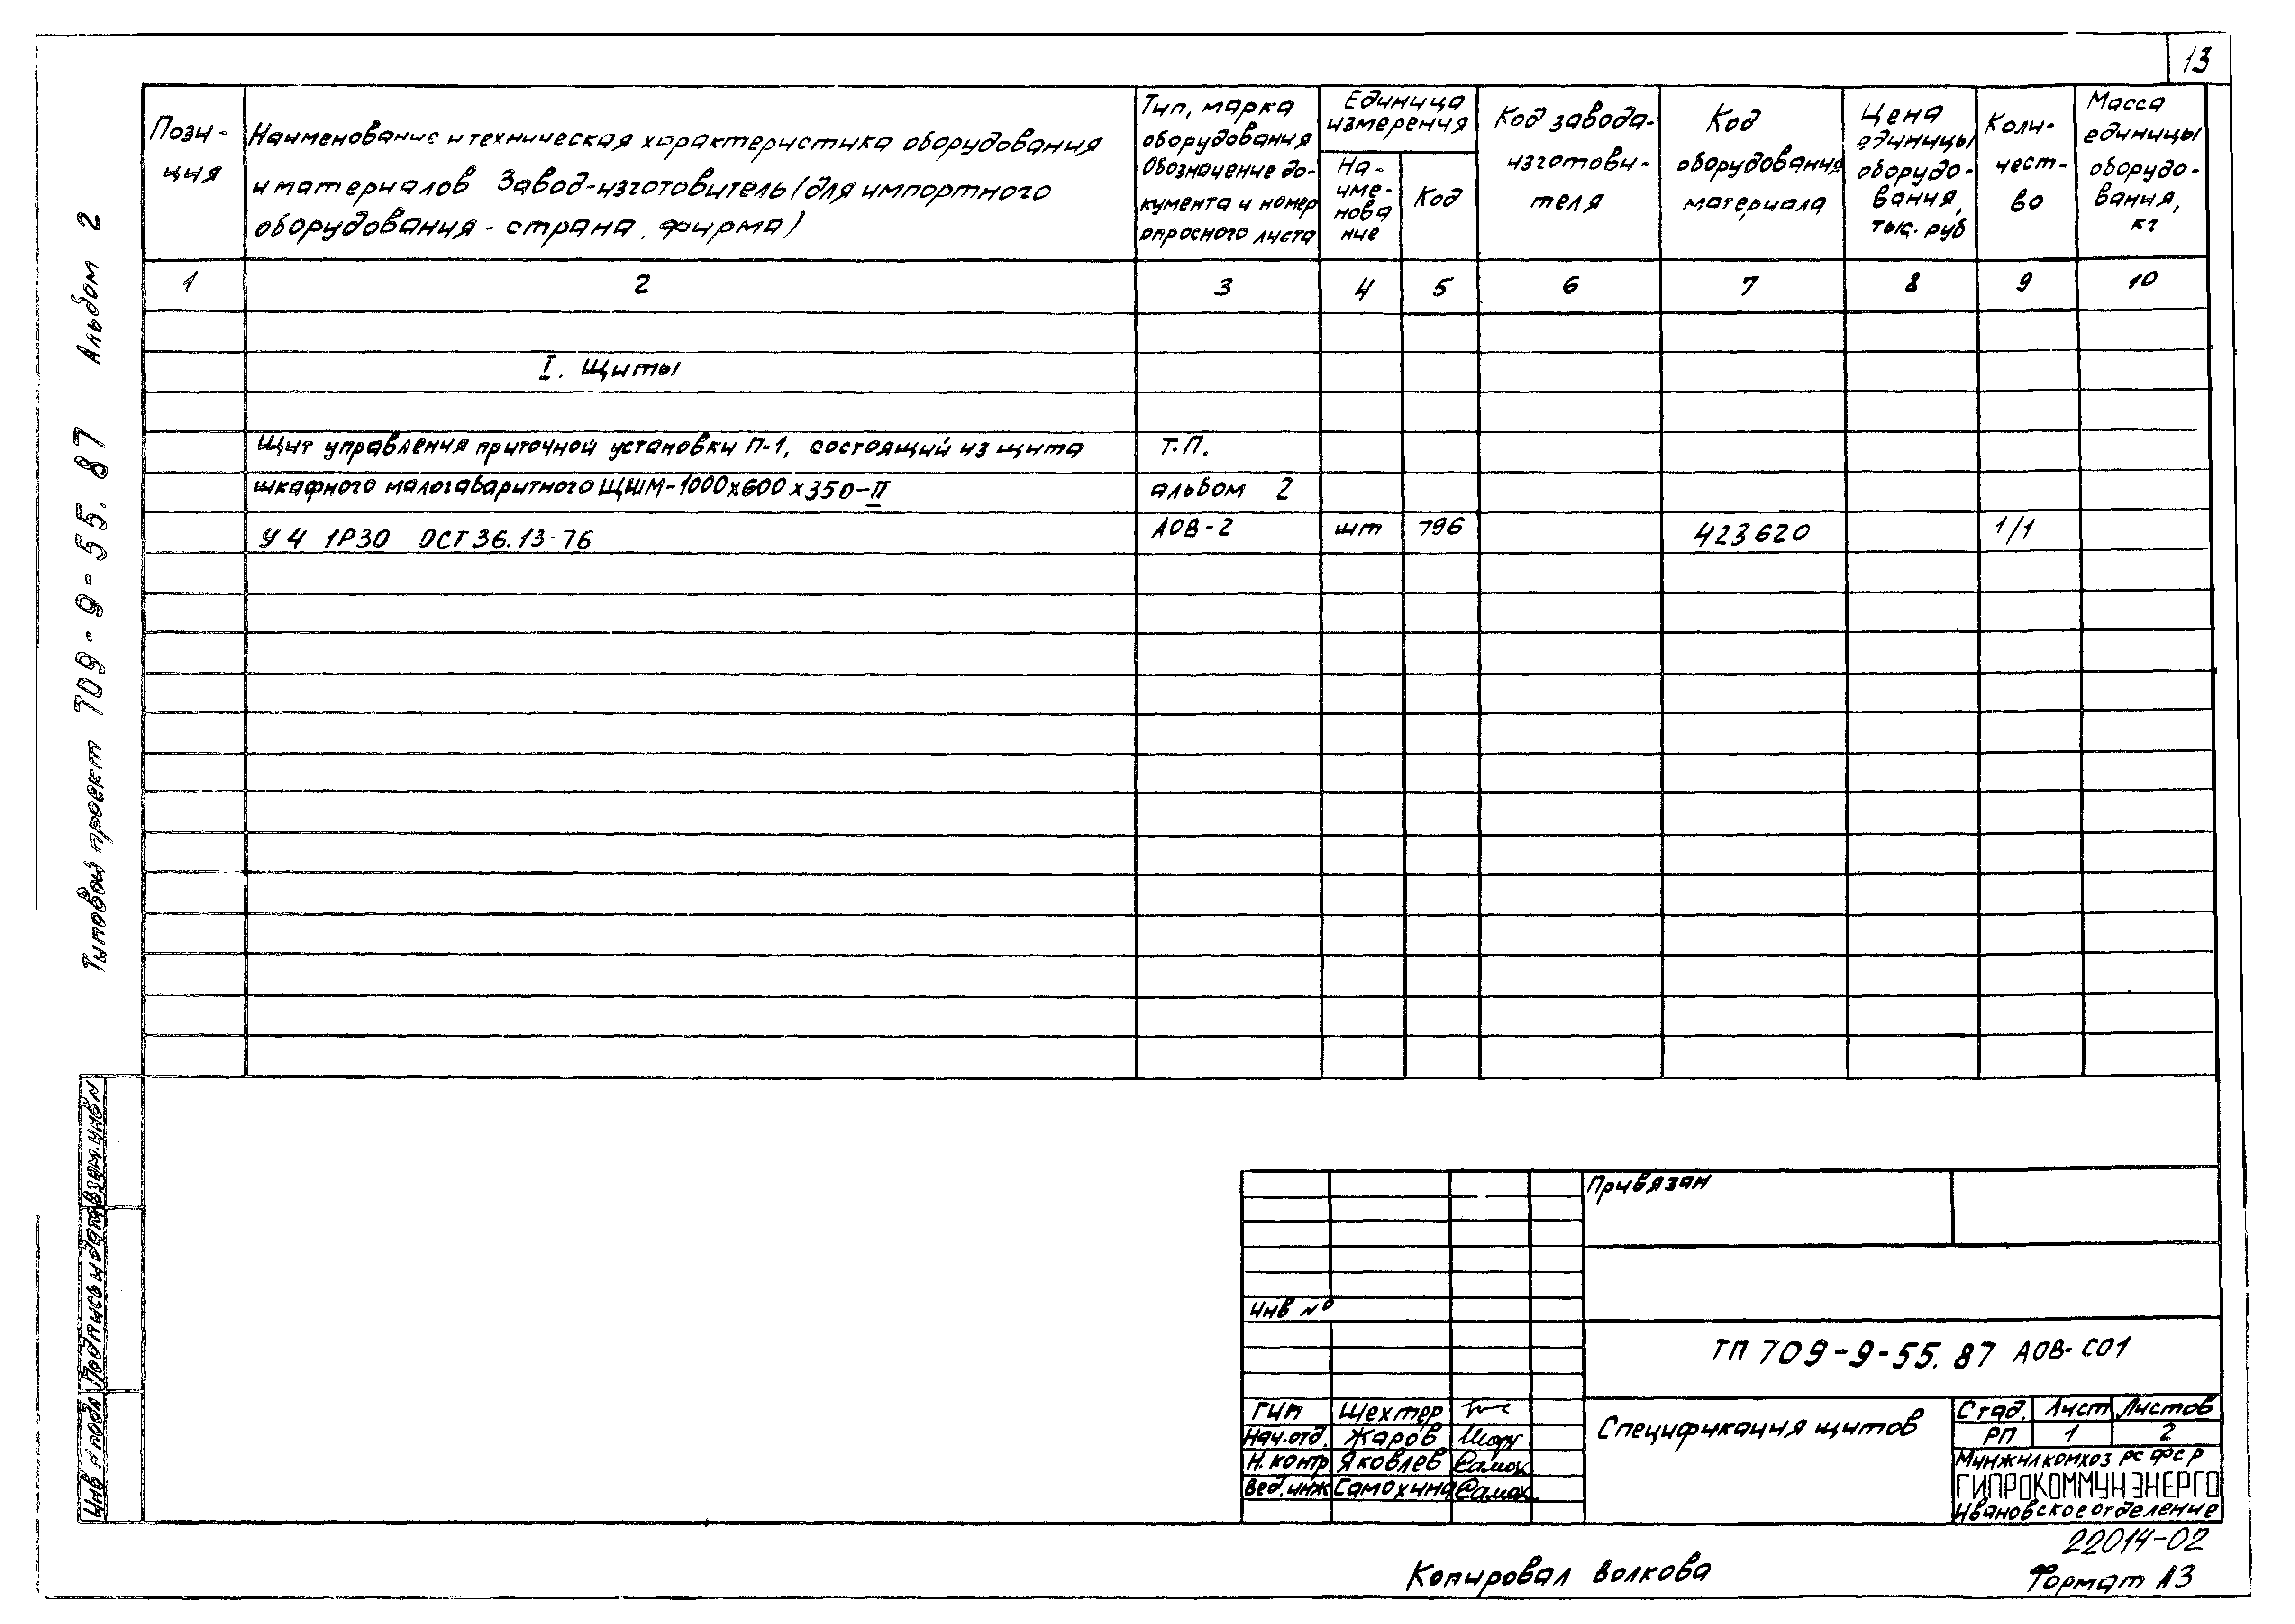 13
Типовой проект 709-9-55.87 Альбом 2
Пози-
ция
Наименование и техническая характеристика оборудования
и материалов Завод-изготовитель (для импортного
оборудования - страна, фирма)
Тип, марка
оборудования
Обозначение до-
кумента и номер
опросного листа
Единица
измерения
На-
име-
нова
ние
Код
Код завода-
изготови-
теля
Код
оборудования
материала
Цена
единицы
оборудо-
вания,
тыс. руб
Коли-
чест-
во
Масса
единицы
оборудо-
вания,
кг
1 2 3 4 5 6 7 8 9 10
I. Щиты
Щит управления приточной установки П-1, состоящий из щита Т.П.
шкафного малогабаритного ЩШМ-1000х600х350-II альбом 2
У4 1Р30 ОСТ 36.13-76 АОВ-2 шт 796 423620 1/1
Взам. инв N
Подпись и дата
Инв N подл
Привязан
Инв №
ТП 709-9-55.87 АОВ-С01
ГИП Шехтер
Нач.отд. Жаров
Н. контр Яковлев
Вед.инж Самохина
Спецификация щитов
Стад. Лист Листов
РП 1 2
Минжилкомхоз РСФСР
ГИПРОКОММУНЭНЕРГО
Ивановское отделение
22014-02
Копировал Волкова
Формат А3